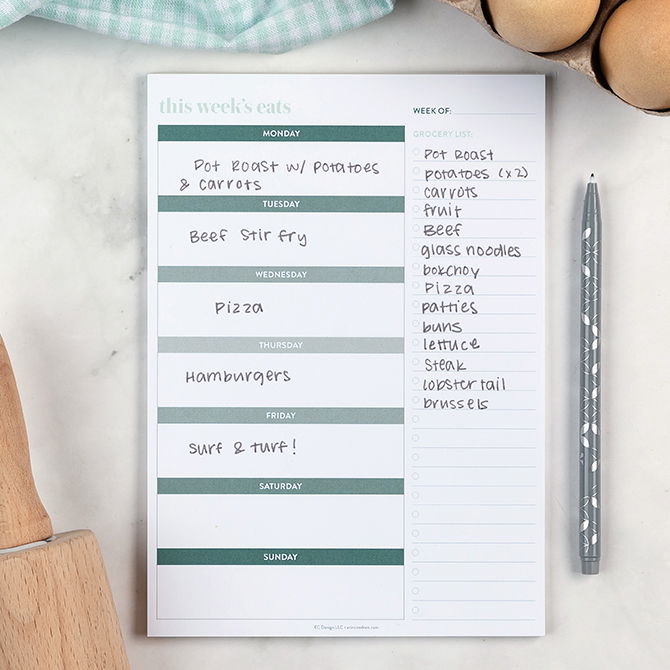 this week's eats
MONDAY
Pot Roast w/ Potatoes
& Carrots
TUESDAY
Beef Stir fry
WEDNESDAY
Pizza
THURSDAY
Hamburgers
FRIDAY
Surf & turf!
SATURDAY
SUNDAY
WEEK OF:
GROCERY LIST:
Pot Roast
potatoes (x2)
carrots
fruit
Beef
glass noodles
bokchoy
Pizza
patties
buns
lettuce
Steak
lobster tail
brussels